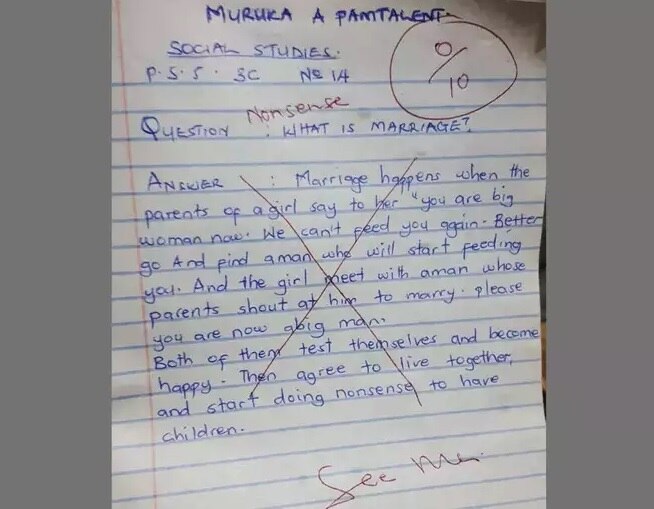 MURUKA A PAMTALENT.
SOCIAL STUDIES.
P.S.S. 3C No 14
0/10
Nonsense
QUESTION : WHAT IS MARRIAGE?
ANSWER : Marriage happens when the
parents of a girl say to her "you are big
woman now. We can't feed you again. Better
go And find a man who will start feeding
you. And the girl meet with a man whose
parents shout at him to marry. please
you are now a big man.
Both of them test themselves and become
happy. Then agree to live together,
and start doing nonsense to have
children.
See Me.